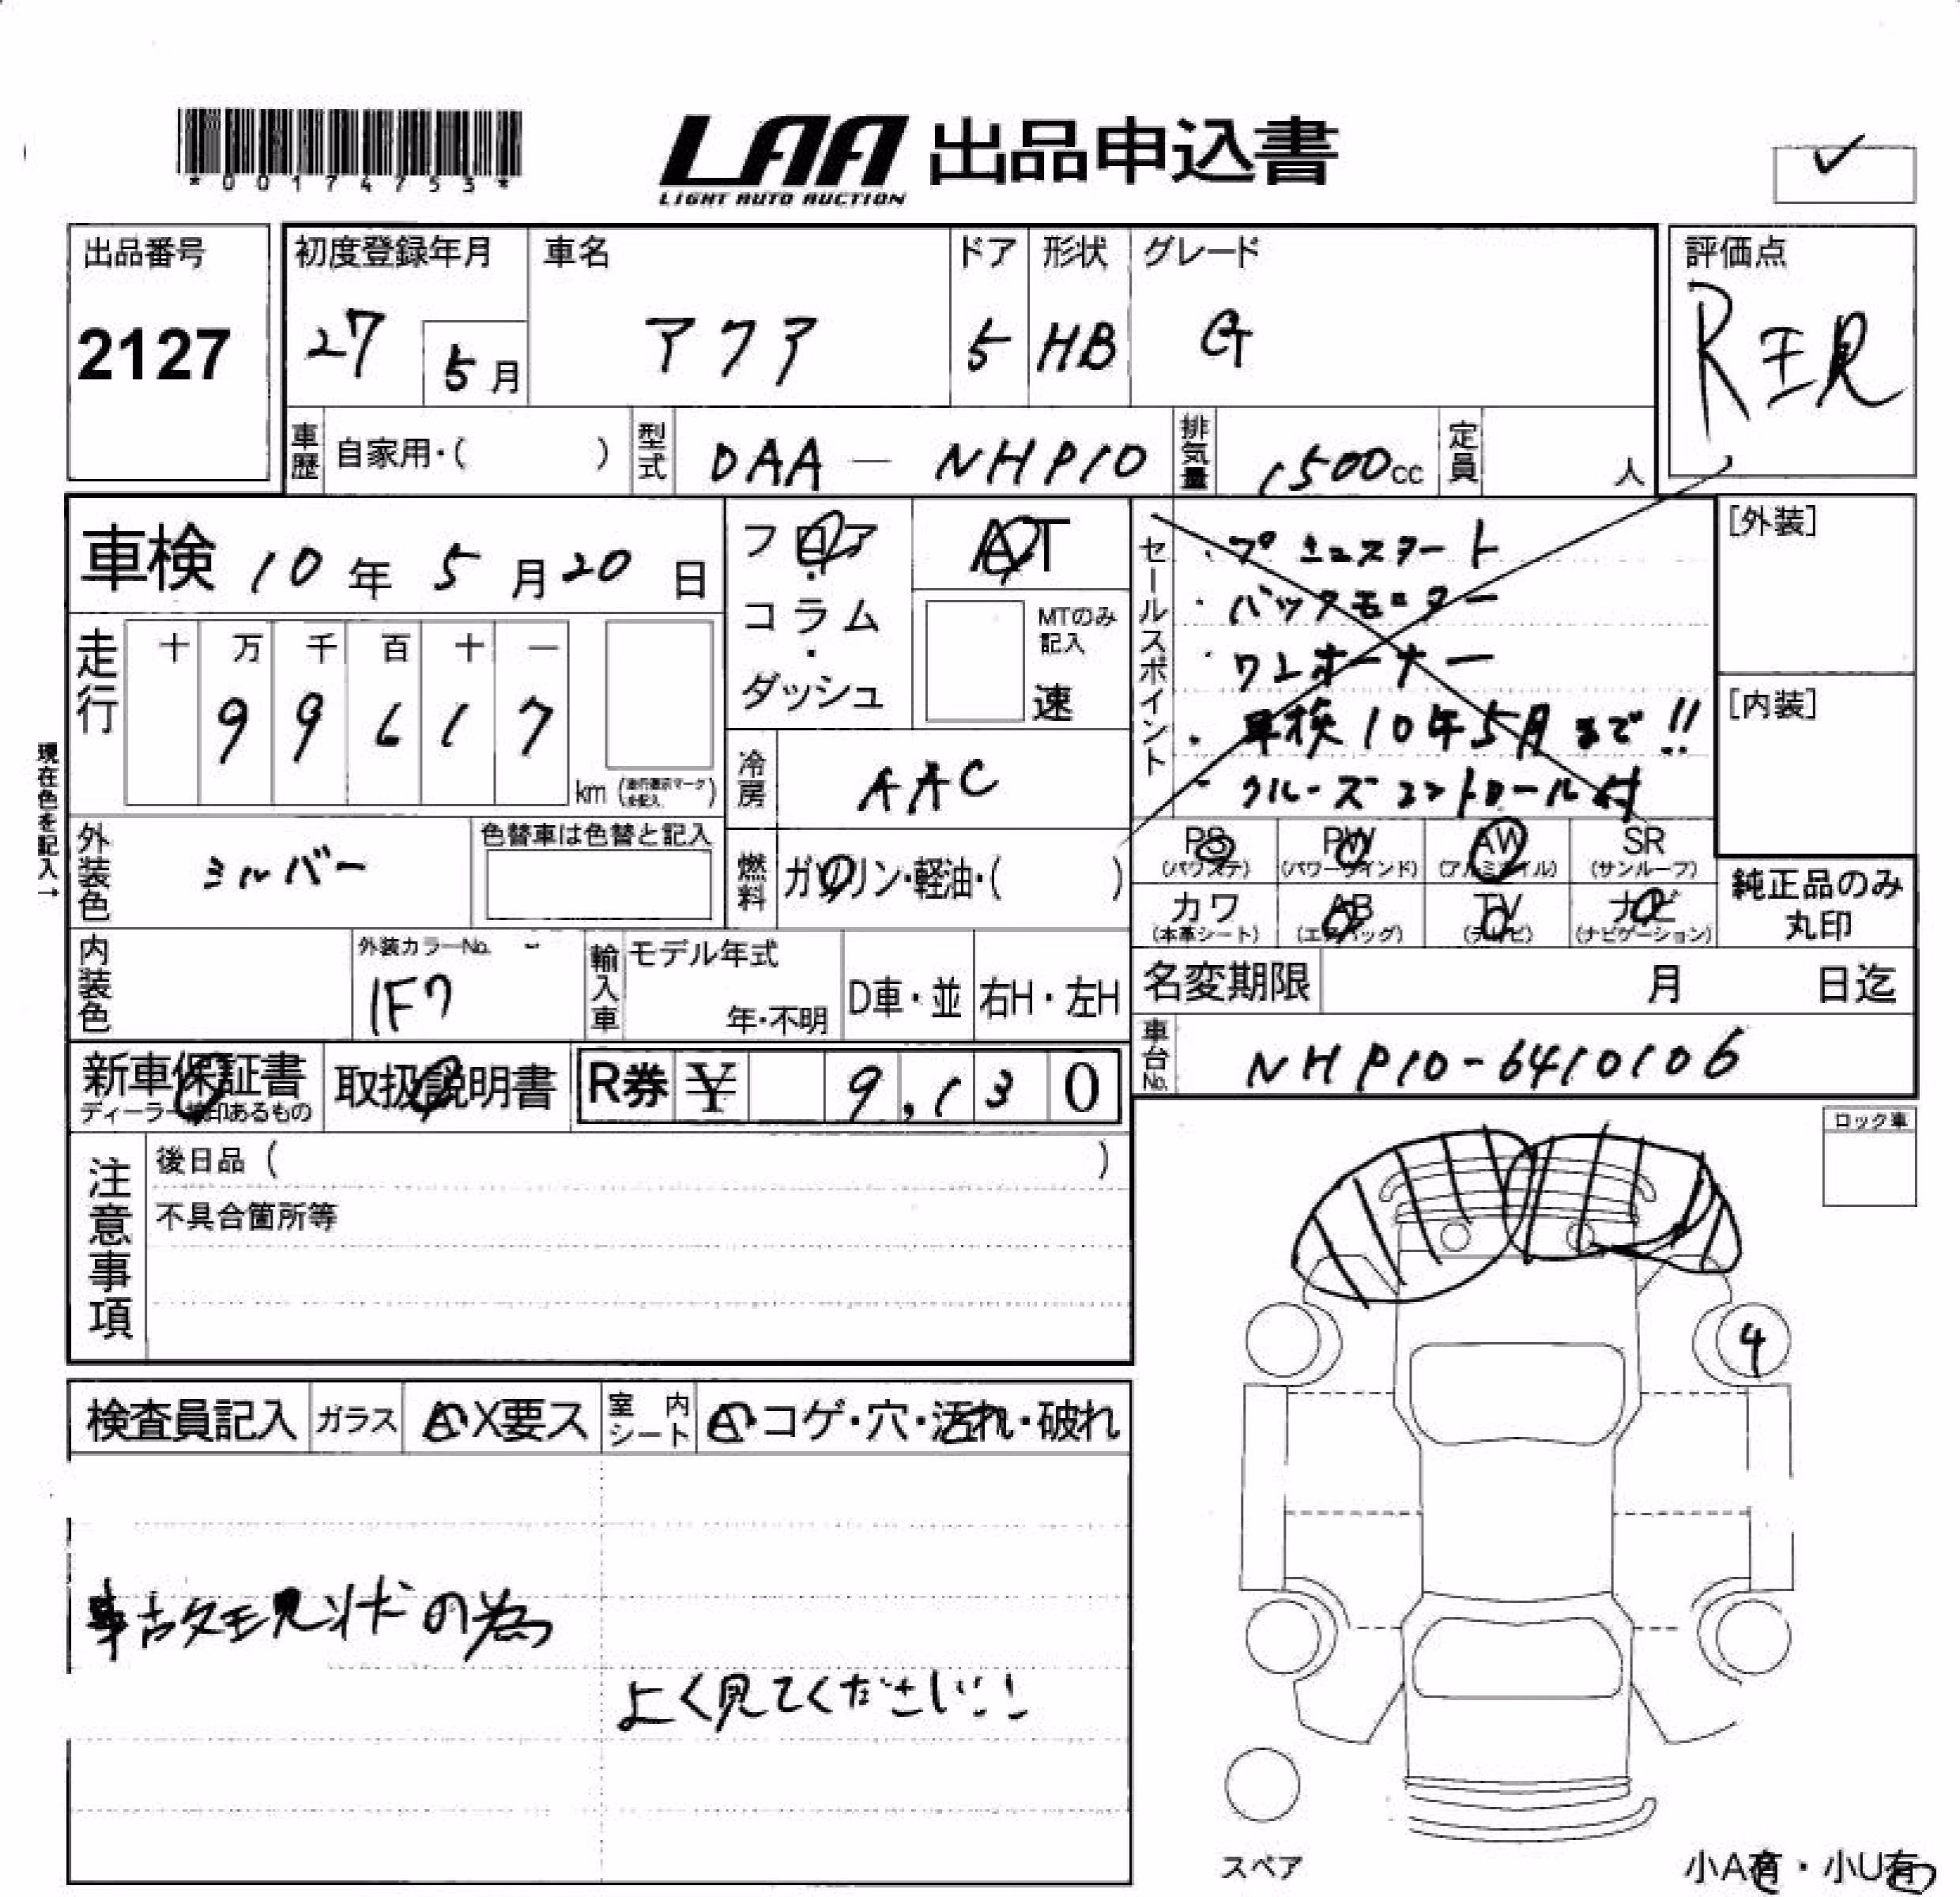 *00174753*
LAA 出品申込書
LIGHT AUTO AUCTION
✓
出品番号
2127
初度登録年月
27
5月
車名
アクア
ドア
5
形状
HB
グレード
G
評価点
R 現
車歴
自家用・( )
型式
DAA - NHP10
排気量
1500cc
定員
人
車検 10年 5月20日
フロア・コラム・ダッシュ
AT
MTのみ記入
速
セールスポイント
・プッシュスタート
・バックモニター
・ワンオーナー
・車検10年5月まで!!
・クルーズコントロール付
[外装]
[内装]
走行
十 万 千 百 十 一
9 9 6 1 7
km
現在色を記入→
冷房
AAC
外装色
シルバー
色替車は色替と記入
燃料
ガソリン・軽油・( )
PS
(パワステ)
PW
(パワーウインド)
AW
(アルミホイル)
SR
(サンルーフ)
カワ
(本革シート)
AB
(エアバッグ)
TV
(テレビ)
ナビ
(ナビゲーション)
純正品のみ
丸印
内装色
外装カラーNo.
1F7
輸入車
モデル年式
年・不明
D車・並
右H・左H
名変期限
月 日迄
車台No.
NHP10-6410106
新車保証書
ディーラー捺印あるもの
取扱説明書
R券 ¥ 9,130
注意事項
後日品 ( )
不具合箇所等
ロック車
4
検査員記入
ガラス
A・X要ス
室内シート
A・コゲ・穴・汚れ・破れ
事故現状の為
よく見てください!!
スペア
小A有・小U有